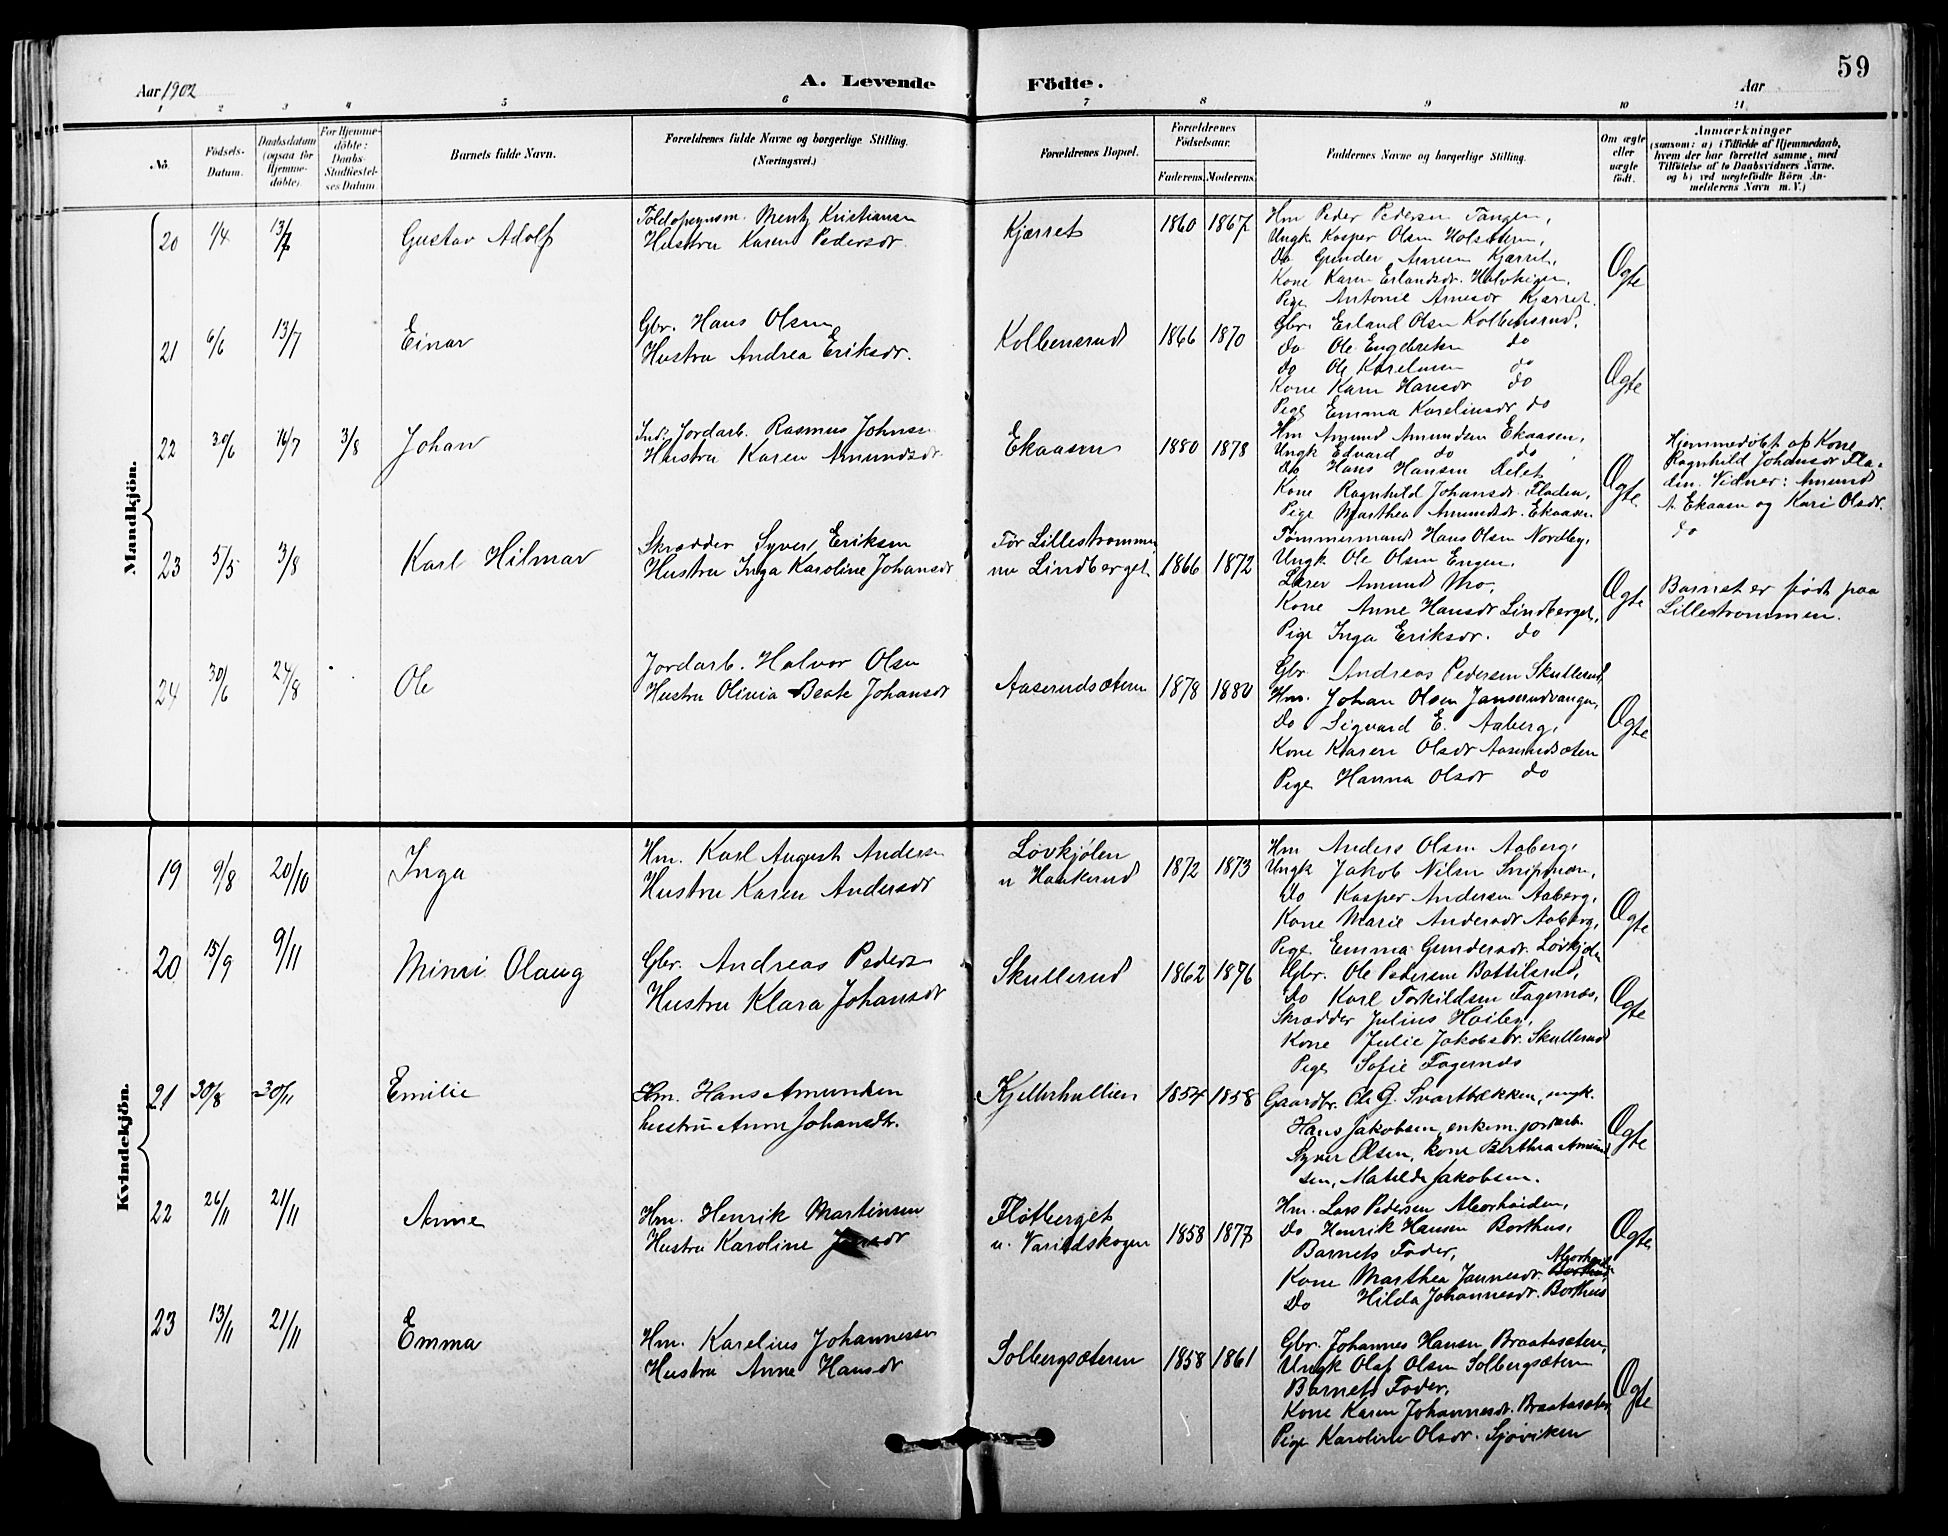 59
Aar 1902
A. Levende
Födte.
Aar
1 2 3 4 5 6 7 8 9 10 11
No.
Födsels-Datum.
Daabsdatum (ogsaa for Hjemme-döbte).
For Hjemme-döbte: Daabs-Stadfæstelses Datum
Barnets fulde Navn.
Forældrenes fulde Navne og borgerlige Stilling. (Næringsvei.)
Forældrenes Bopæl.
Forældrenes Födselsaar.
Faderens. Moderens.
Faddernes Navne og borgerlige Stilling.
Om ægte eller uægte födt.
Anmærkninger
(saasom: a) i Tilfælde af Hjemmedaab, hvem der har forrettet samme, med Tilföielse af to Daabsvidners Navne. og b) ved uægtefödte Börn Anmelderens Navn m. V.)
Mandkjön.
20 1/4 13/7 Gustav Adolf
Mentz Kristiansen
Hustru Karen Pedersdr.
Kjærret 1860 1867
Hm Peder Pedersen Tangen,
Ungk Kasper Olsen Holsæteren,
Do Gunder Arnesen Kjærret,
Kone Karen Erlandsdr.
Pige Antonie Arnesdr Kjærret.
Ægte
21 6/6 13/7 Einar
Gbr. Hans Olsen
Hustru Andrea Eriksdr.
Kolbensrud 1866 1870
Gbr. Erland Olsen Kolbensrud.
do Ole Engebretsen do
do Ole Karelinsen do
Kone Karen Hansdr do
Pige Emma Karelinsdr do
Ægte
22 30/6 16/7 3/8 Johan
Ind. Jordarb. Rasmus Johnsen
Hustru Karen Amundsdr
Ekaasen 1880 1878
Hm Amund Amundsen Ekaasen,
Ungk Edvard do do
do Hans Hansen
Kone Ragnhild Johansdr. Fladen,
Pige Marthea Amundsdr. Ekaasen
Ægte
Hjemmedøbt af Kone
Ragnhild Johansdr Fla-
den. Vidner: Amund
A. Ekaasen og Kari Olsdr.
do
23 5/5 3/8 Karl Hilmar
Skrædder Syvert Eriksen
Hustru Inga Karoline Johansdr
Før Lillestrømmen
nu Lindberget 1866 1872
Tømmermand Hans Olsen Nordby,
Ungk Ole Olsen Engen,
Lærer Amund Mo,
Kone Anne Hansdr Lindberget,
Pige Inga Eriksdr. do
Ægte
Barnet er født paa
Lillestrømmen.
24 30/6 24/8 Ole
Jordarb. Halvor Olsen
Hustru Olivia Beate Johansdr
Aaserudsæteren 1878 1880
Gbr Andreas Pedersen Skullerud,
Hm. Johan Olsen Janserudvangen,
Do Sigvard E. Aaberg,
Kone Karen Olsdr Aaserudsæteren
Pige Hanna Olsdr do
Ægte
Kvindekjön.
19 9/8 20/10 Inga
Hm. Karl August Andersen
Hustru Karen Andersdr
Løvkjølen
u Haukerud 1872 1873
Hm Anders Olsen Aaberg,
Ungk Jakob Nilsen Snipmoen,
Do Kasper Andersen Aaberg,
Kone Marie Andersdr Aaberg,
Pige Emma Gundersdr. Løvkjølen
Ægte
20 15/9 9/11 Mimi Olaug
Gbr. Andreas Pedersen
Hustru Klara Johansdr
Skullerud 1862 1876
Gbr. Ole Pedersen Bottilsrud,
Do Karl Torkildsen Fagernæs,
Skrædder Julius Høiler,
Kone Julie Jakobsdr. Skullerud
Pige Sofie Fagernæs
Ægte
21 30/8 30/11 Emilie
Hm. Hans Amundsen
hustru Anne Johansdtr.
Kjellerhullien 1854 1858
Gaardbr. Ole G. Svartbækken, ungk.
Hans Jakobsen, enkem. jordarb.
Syver Olsen, kone Berthea Amund-
sen, Matilde Jakobsen.
Ægte
22 26/11 21/11 Anne
Hm. Henrik Martinsen
Hustru Karoline
Fløtberget
u. Varildskogen 1858 1877
Hm. Lars Pedersen Moorheiden,
Do Henrik Hansen Borthus,
Barnets Fader,
Kone Marthea Jannesdr.
Do Hilda Johannesdr. Borthus
Ægte
23 13/11 21/11 Emma
Hm. Karelius Johannessen
Hustru Anne Hansdr
Solbergsæteren 1858 1861
Gbr. Johannes Hansen Braatasæteren,
Ungk Olaf Olsen Solbergsæteren
Barnets Fader,
Kone Karen Johannesdr. Braatasæter
Pige Karoline Olsdr. Sjøviken
Ægte